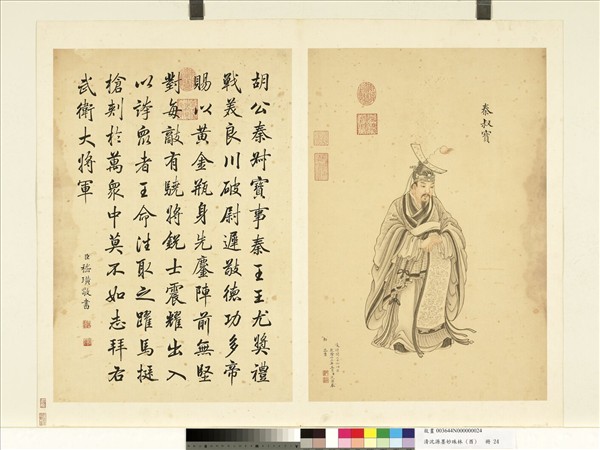 秦叔寶
胡公秦叔寶事秦王王尤奬禮
戰美良川破尉遲敬德功多帝
賜以黃金瓶身先鏖陣前無堅
對每敵有驍將銳士震耀出入
以誇眾者王命往取之躍馬挺
槍刺於萬眾中莫不如志拜右
武衛大將軍
臣嵇璜敬書
故畫 003644N000000024
清沈源墨妙珠林（酉） 冊 24